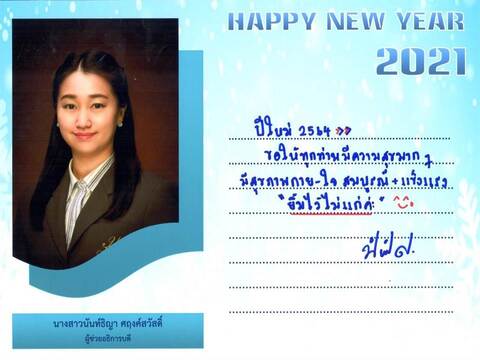 HAPPY NEW YEAR
2021
ปีใหม่ 2564
ขอให้ทุกท่านมีความสุขมาก ๆ
มีสุขภาพกาย-ใจ สมบูรณ์+แข็งแรง
"ยิ้มไว้ไม่แก่ค่ะ"
นางสาวนันท์ธิญา ศฤงค์สวัสดิ์
ผู้ช่วยอธิการบดี